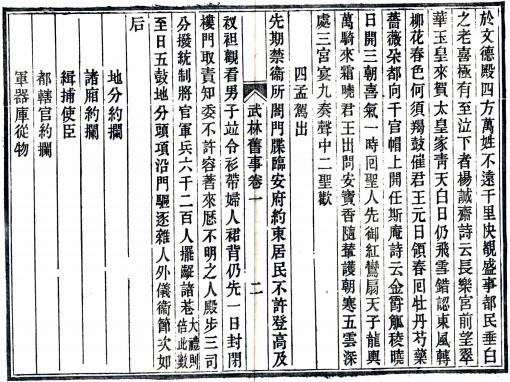 於文德殿四方萬姓不遠千里快覩盛事都民垂白
之老喜極有至泣下者楊誠齋詩云長樂宮前望翠
華玉皇來賀太皇家青天白日仍飛雪錯認東風轉
柳花春色何須羯鼓催君王元日領春回牡丹芍藥
薔薇朶都向千官帽上開任斯庵詩云金爵觚稜曉
日開三朝喜氣一時回聖人先御紅鸞扇天子龍輿
萬騎來霜曉君王出問安寶香隨輦護朝寒五雲深
處三宮宴九奏聲中二聖歡
四孟駕出
先期禁衛所閤門牒臨安府約束居民不許登高及
武林舊事卷一 二
衩袒觀看男子竝令衫帶婦人裙背仍先一日封閉
樓門取責知委不許容著來厯不明之人殿步三司
分撥統制將官軍兵六千二百人擺齪諸巷大禮則倍此數
至日五鼓地分頭項沿門驅逐雜人外儀衛節次如
后
地分約攔
諸廂約攔
緝捕使臣
都轄官約攔
軍器庫從物